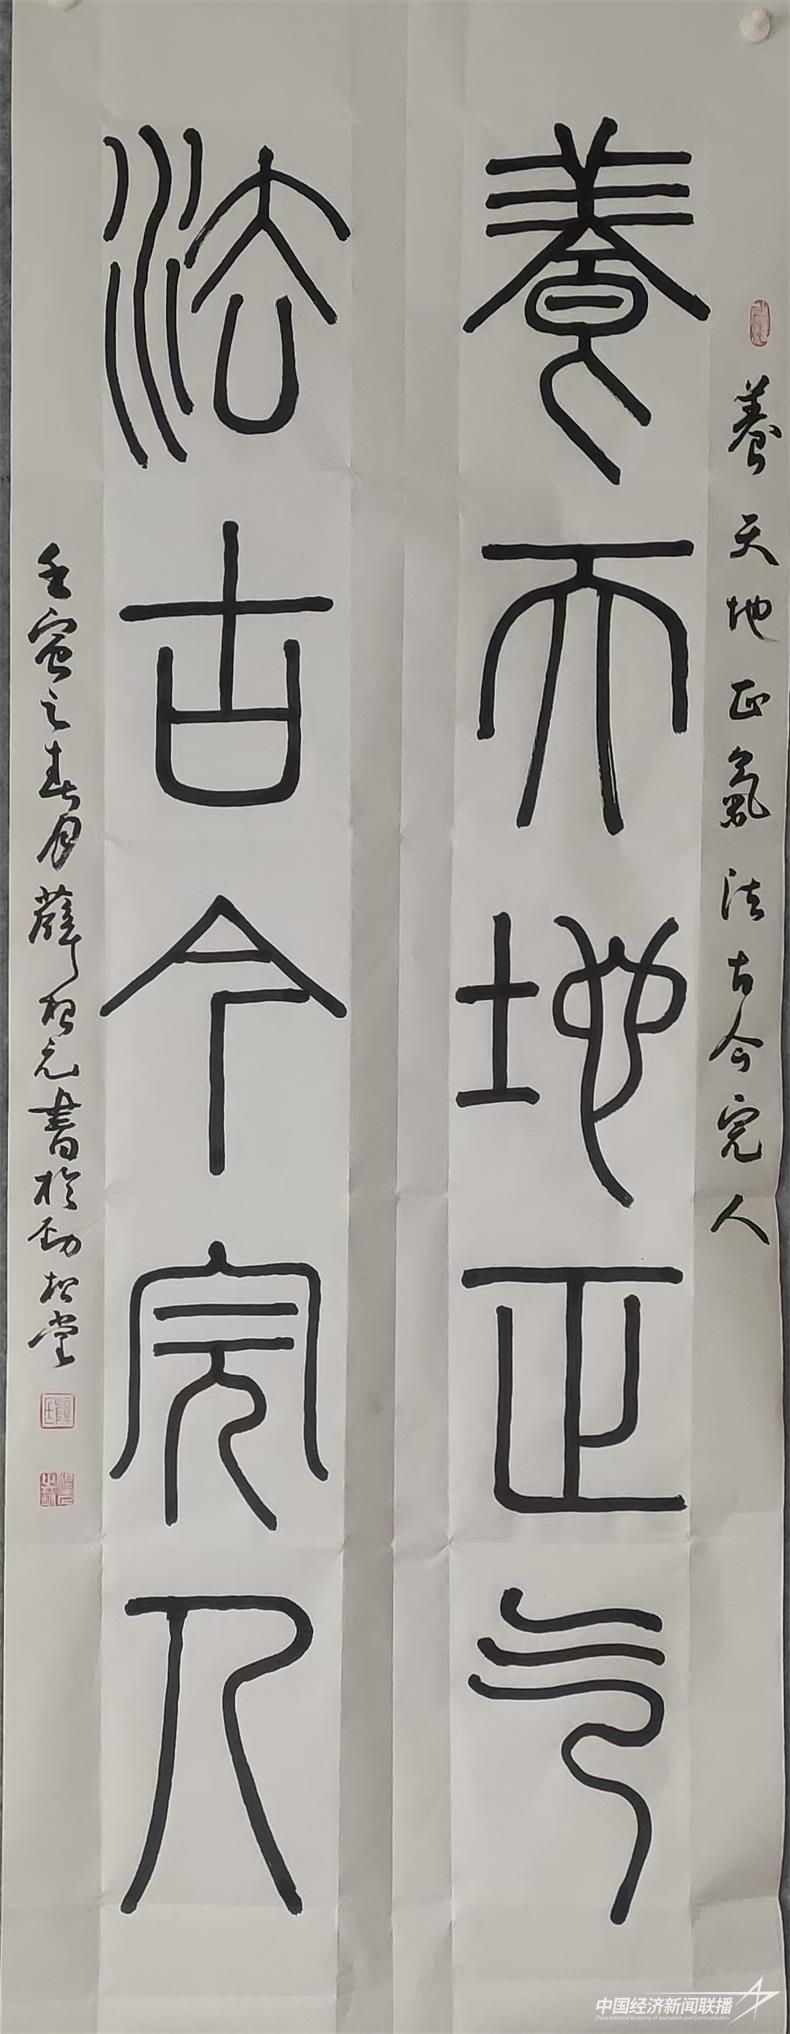 養天地正氣法古今完人
養天地正气
法古今完人
壬寅之春月薛松元書於勁松堂
中国经济新闻联播
China Industrial Economy of Journalism and Communication